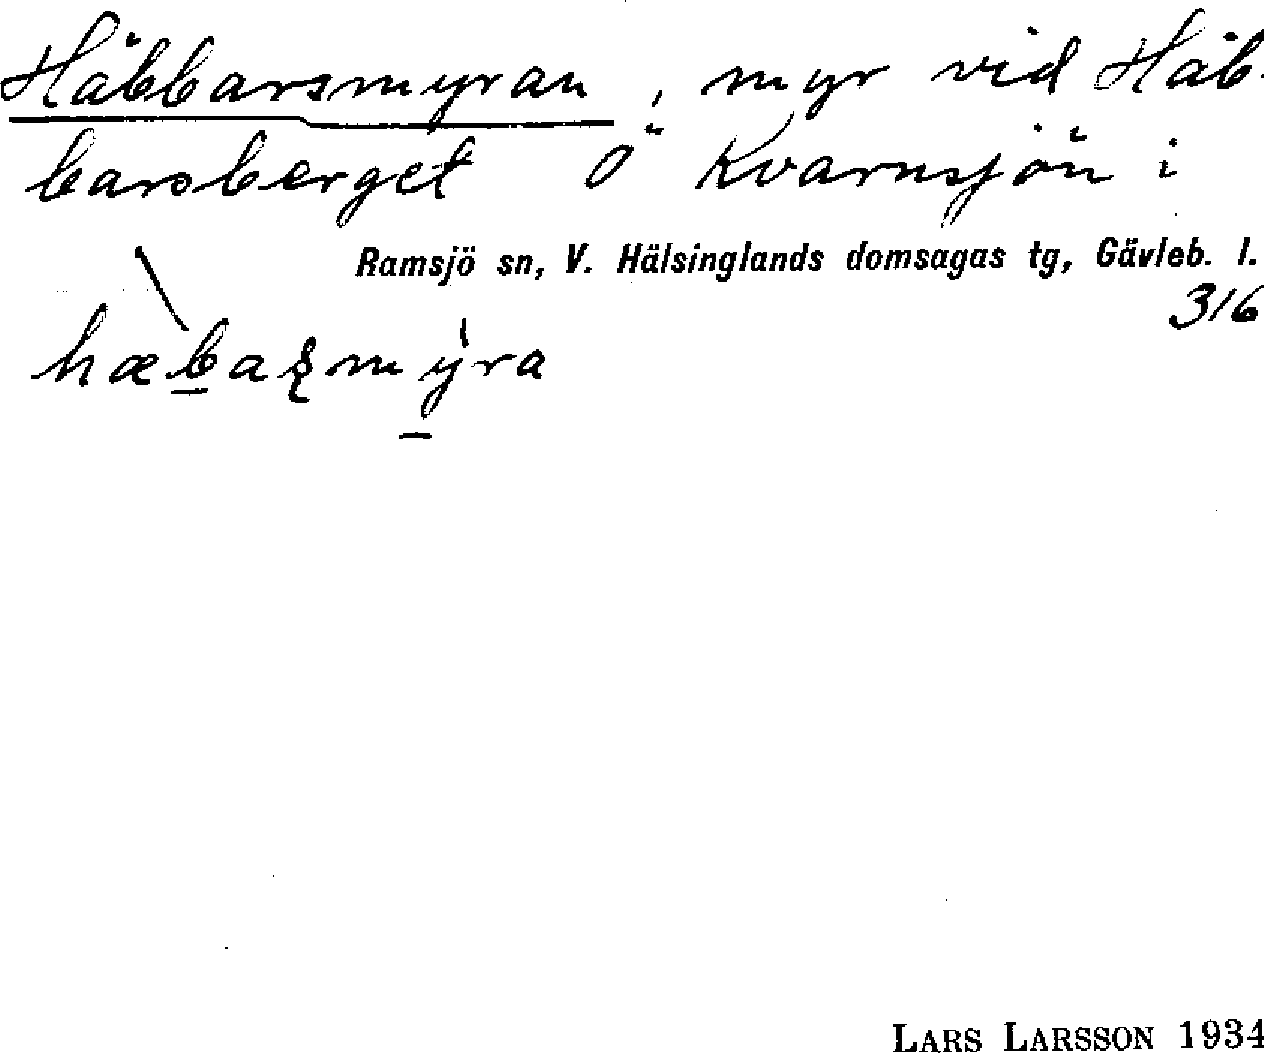 Häbbarsmyran, myr vid Häb-
barsberget Ö Kvarnsjön i
Ramsjö sn, V. Hälsinglands domsagas tg, Gävleb. l.
316
LARS LARSSON 1934